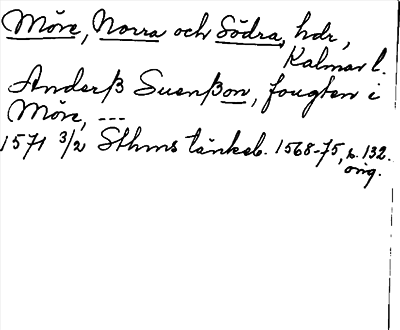 Möre, Norra och Södra, hdr,
Kalmar l.
Anderß Suenßon, fougten i
Möre, ---
1571 3/2 Sthms tänkeb. 1568-75, s. 132.
orig.